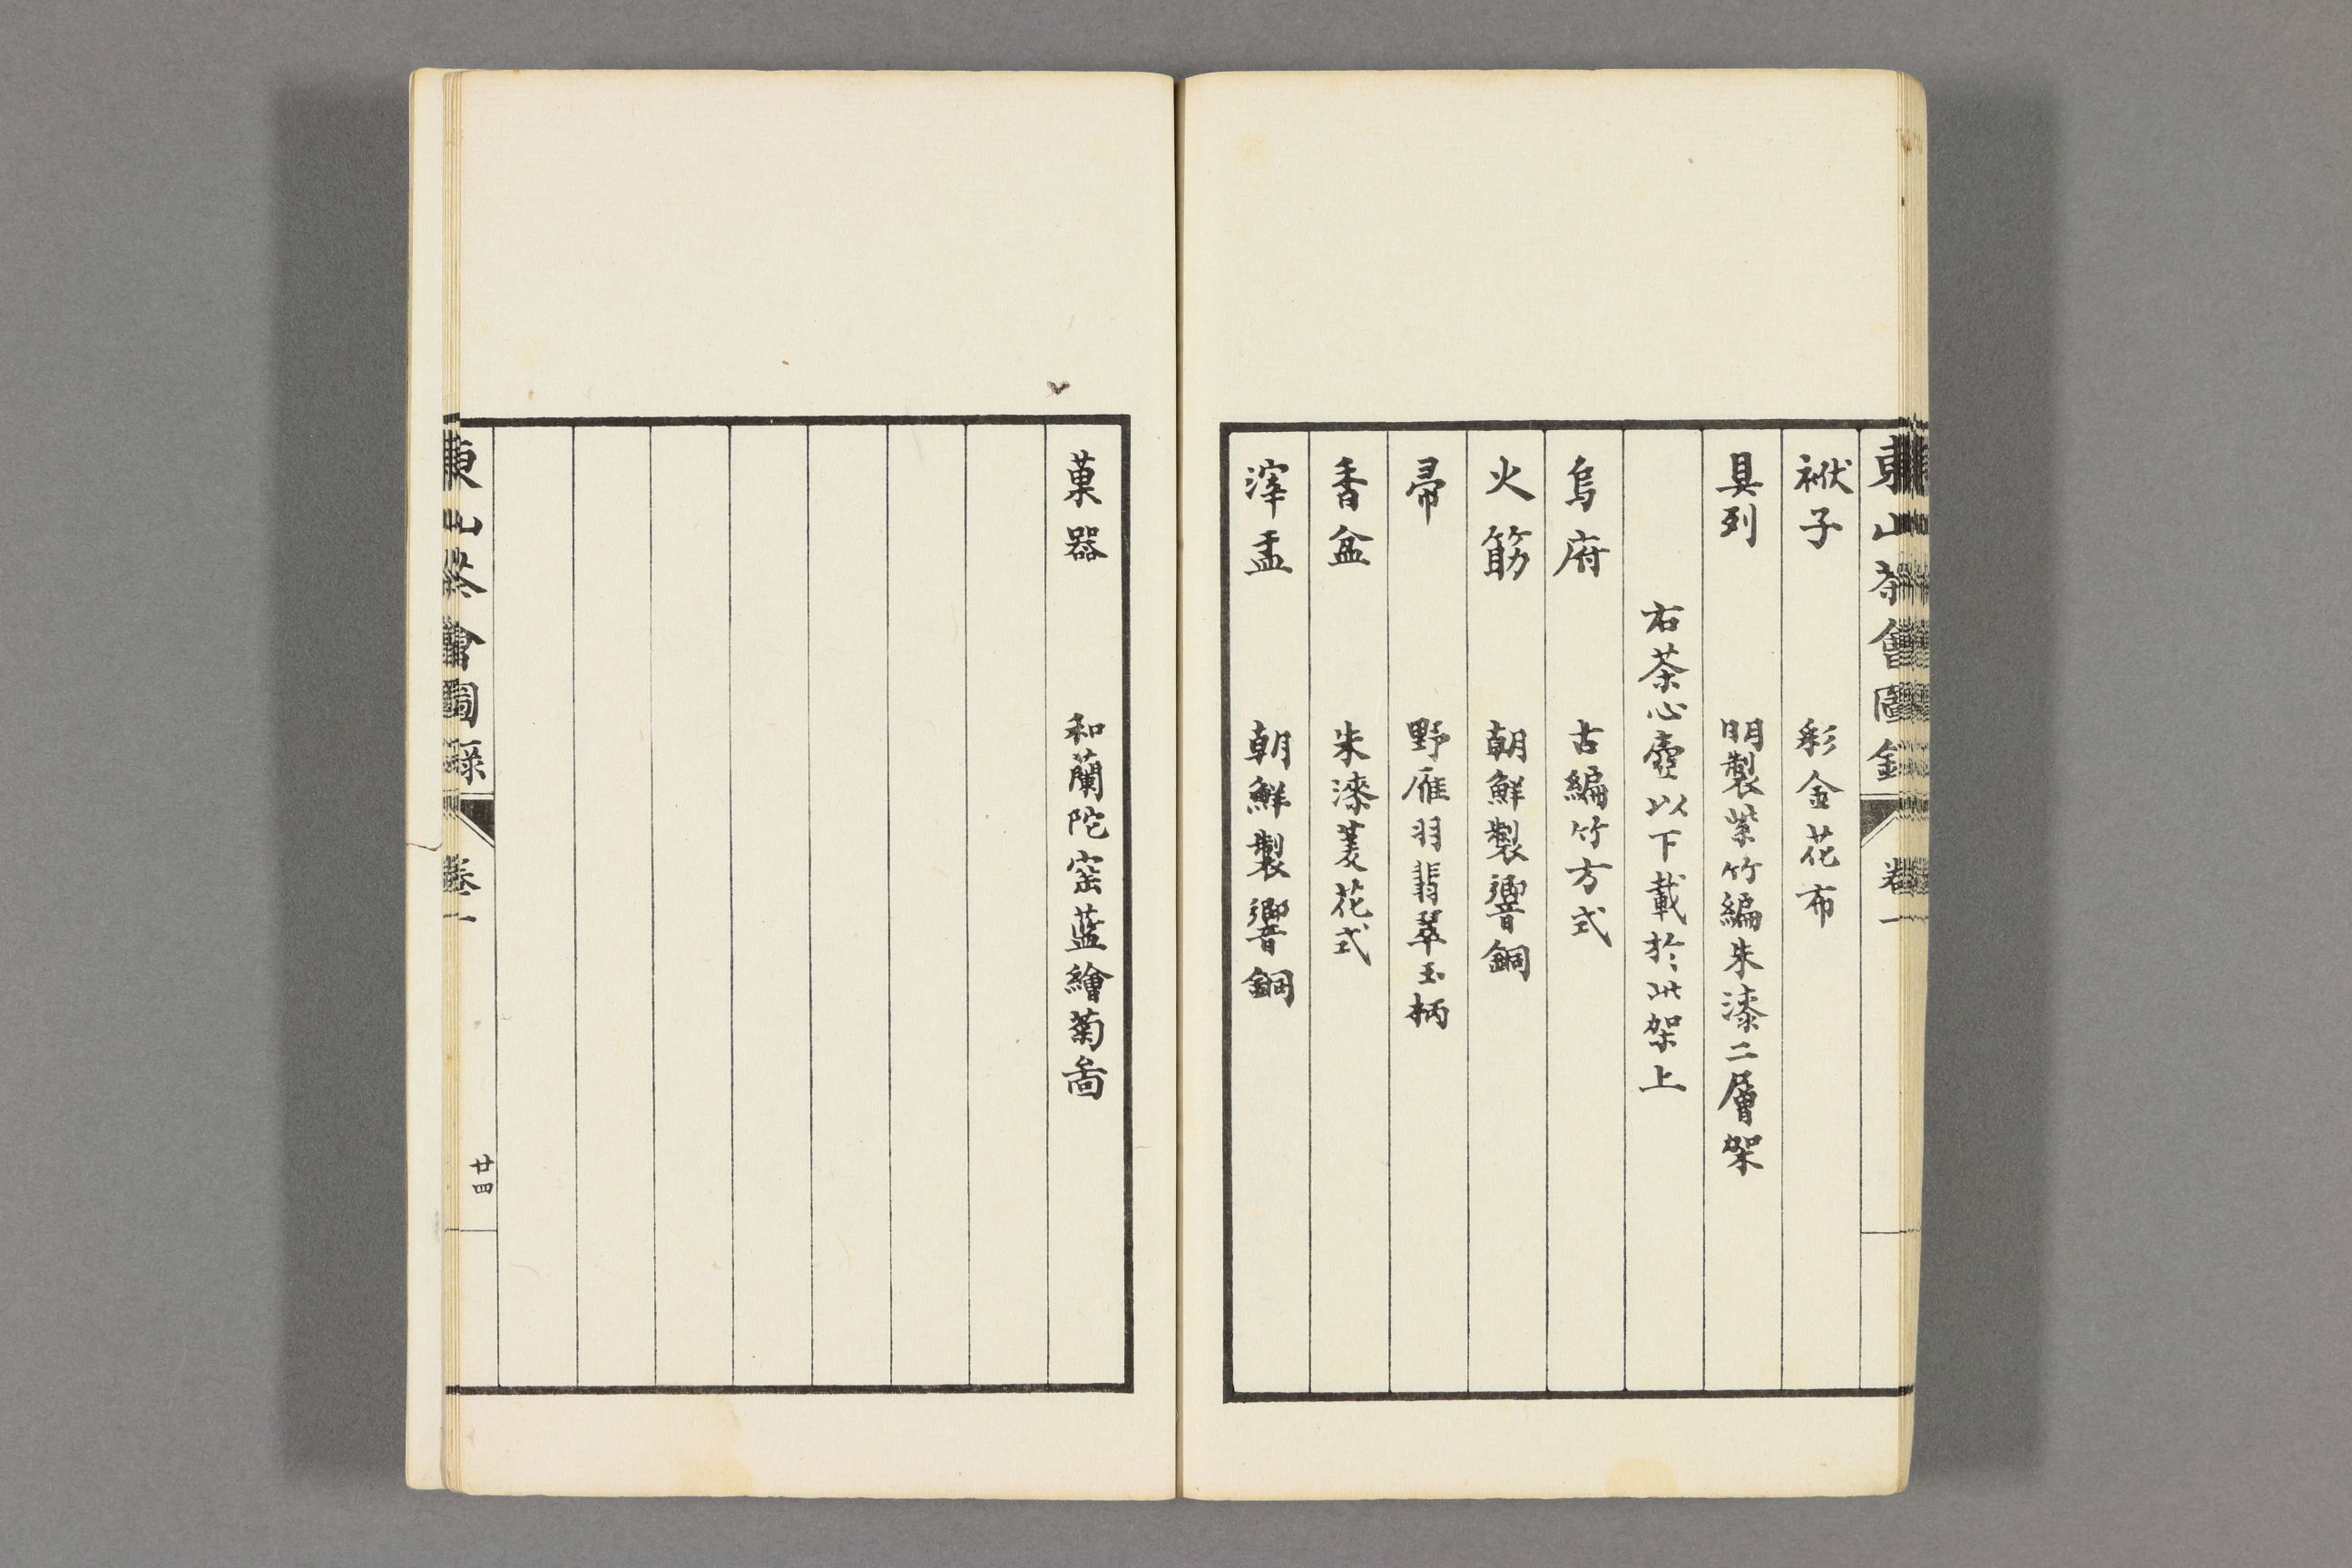 東山茶會圖錄 卷一
袱子 彩金花布
具列 明製紫竹編朱漆二層架
右茶心壺以下載於此架上
烏府 古編竹方式
火筯 朝鮮製響銅
帚 野雁羽翡翠玉柄
香盆 朱漆菱花式
滓盂 朝鮮製響銅
菓器 和蘭陀窯藍繪菊啚
東山茶會圖錄 卷一 廿四